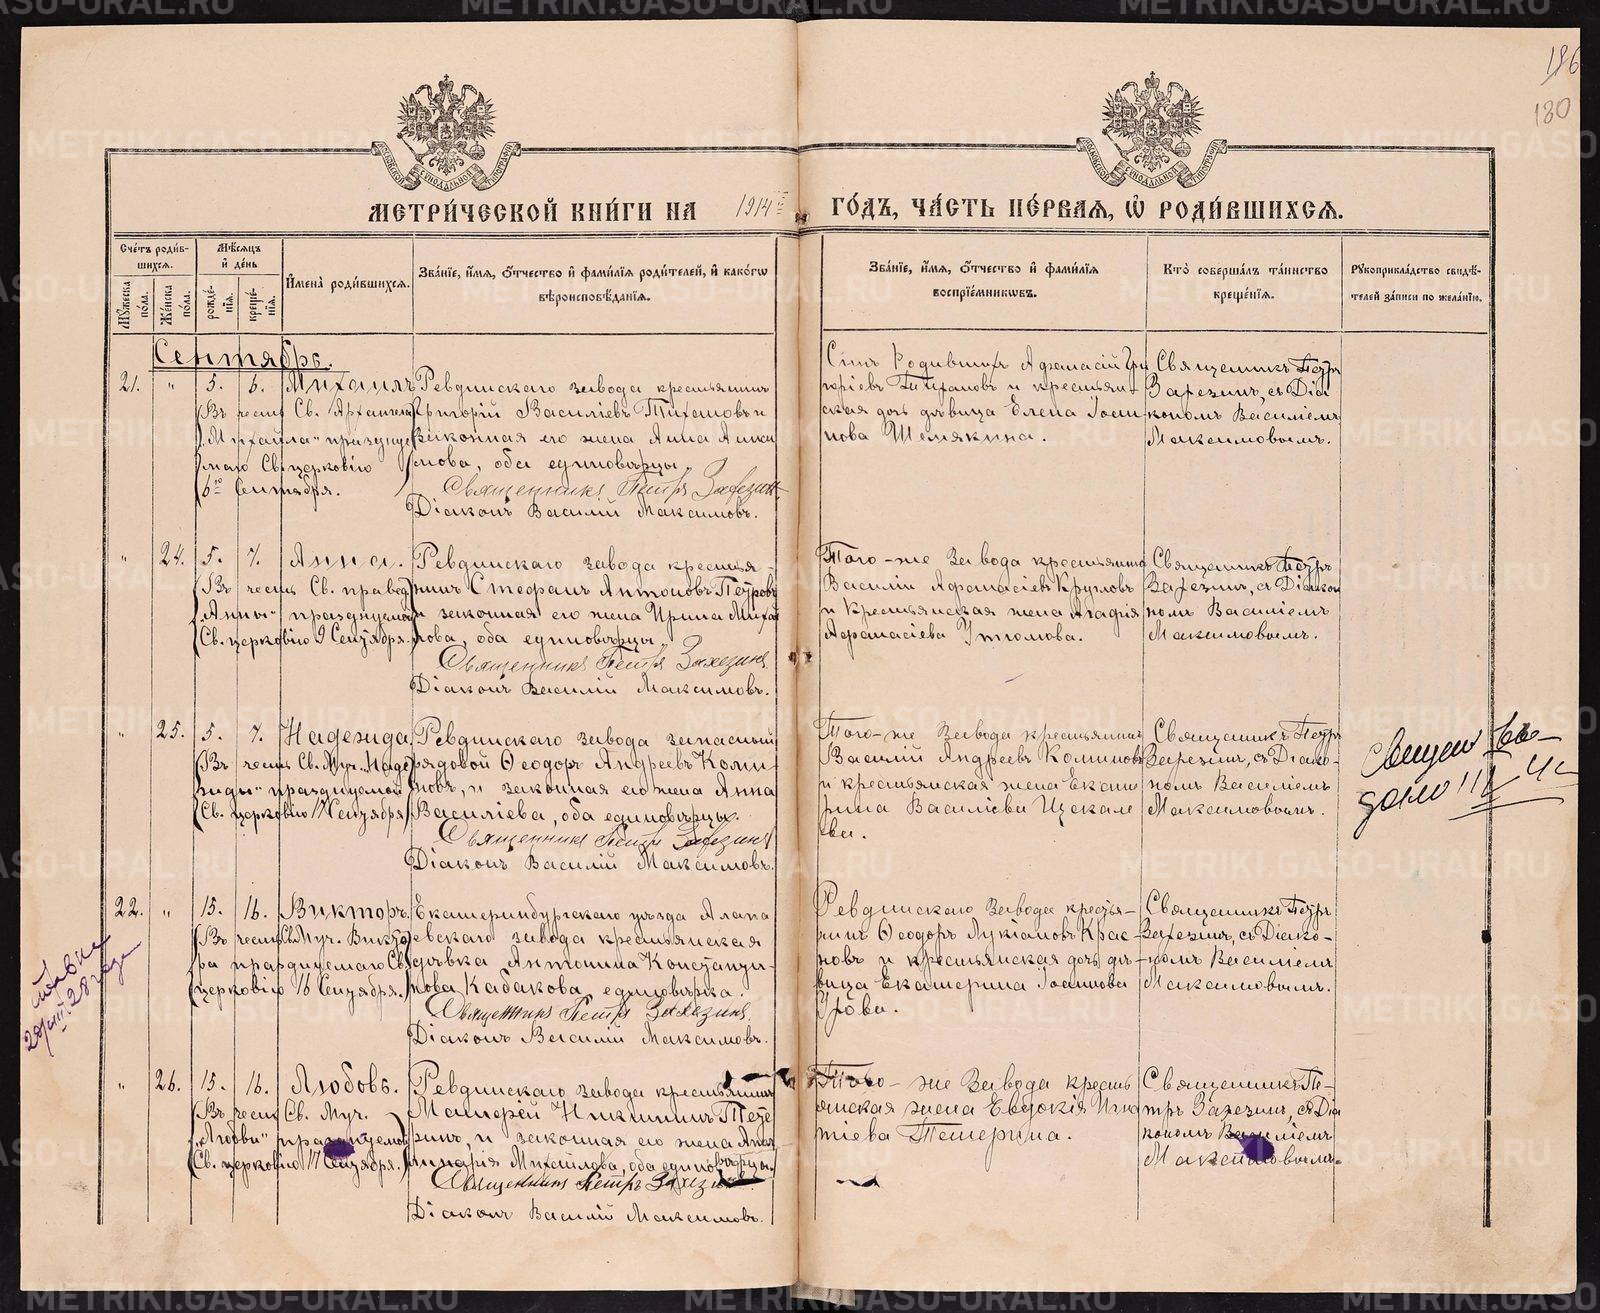 186
180
МЕТРИ́ЧЕСКОЙ КНИ́ГИ НА 1914 ГО́ДЪ, ЧА́СТЬ ПЕ́РВАЯ, Ѡ҆ РОДИ́ВШИХСЯ.
Сче́тъ роди́в-
шихся.
Мꙋжеска по́ла.
Же́нска по́ла.
Мѣ́сяцъ и҆ де́нь
рожде́-
нїя.
креще́-
нїя.
И҆мена̀ роди́вшихся.
Зва́нїе, и҆́мя, ѻ҆́тчество и҆ фами́лїя роди́телей, и҆ како́гѡ
вѣроисповѣ́данїя.
Зва́нїе, и҆́мя, ѻ҆́тчество и҆ фами́лїя
воспрїе́мниковъ.
Кто̀ соверша́лъ та́инство
креще́нїя.
Рꙋкоприкла́дство свидѣ́-
телей за́писи по жела́нїю.
Сентябрь.
21. " 5. 6. Михаилъ
(Въ честь Св. Архангела
"Михаила" праздnуе
маго Св. церковію
6го Сентября.
Ревдинскаго завода крестьянинъ
Григорій Василіевъ Тихановъ и
законная его жена Анна
мова, оба единовѣрцы.
Священникъ Петръ Захезинъ
Діаконъ Василій Максимовъ.
Родившихъ Афанасій Гри
горіевъ Тихановъ и крестьян-
ская дочь дѣвица Елена Іоан
нова Шемякина.
Священникъ Петръ
Захезинъ, съ Діа
кономъ Василіемъ
Максимовымъ.
" 24. 5. 7. Анна.
(Въ честь Св. правед
"Анны" празднуемой
Св. церковію 9 Сентября.
Ревдинскаго завода крестья-
нинъ Стефанъ Антоновъ Петровъ
и законная его жена Ирина Михай
лова, оба единовѣрцы.
Священникъ Петръ Захезинъ
Діаконъ Василій Максимовъ.
Того-же Завода крестьянинъ
Василій Афанасіевъ Кругловъ
и крестьянская жена Агафія
Афанасіева Утюмова.
Священникъ Петръ
Захезинъ, съ Діако
номъ Василіемъ
Максимовымъ.
" 25. 5. 7. Надежда.
(Въ честь Св. Муч. "Наде
жды" празднуемой
Св. церковію 17 Сентября)
Ревдинскаго завода запасный
рядовой Ѳеодоръ Андреевъ Коми-
новъ, и законная его жена Анна
Василіева, оба единовѣрцы.
Священникъ Петръ Захезинъ
Діаконъ Василій Максимовъ.
Того-же Завода крестьянинъ
Василій Андреевъ Коминовъ
и крестьянская жена Екате
рина Василіева Щекале
ва.
Священникъ Петръ
Захезинъ, съ Діако-
номъ Василіемъ
Максимовымъ.
22. " 15. 16. Викторъ.
(Въ честь Св. Муч. Викто
ра празднуемаго Св.
церковію 16 Сентября.
Екатеринбургскаго уѣзда Алапа
евскаго завода крестьянская
дѣвка Антонина Константи
нова Кабакова, единовѣрка.
Священникъ Петръ Захезинъ.
Діаконъ Василій Максимовъ.
Ревдинскаго Завода крестья-
нинъ Ѳеодоръ Лукіановъ Крас-
новъ и крестьянская дочь дѣ-
вица Екатерина Іоаннова
Священникъ Петръ
Захезинъ, съ Діако-
номъ Василіемъ
Максимовымъ.
" 26. 15. 16. Любовь.
(Въ честь Св. Муч.
"Любви" празднуемой
Св. церковію 17 Сентября.)
Ревдинскаго завода крестьянинъ
Никитинъ Тете
ринъ, и законная его жена Апол
линарія Михайлова, оба единовѣрцы.
Священникъ Петръ Захезинъ
Діаконъ Василій Максимовъ.
Того-же Завода кресть
янская жена Евдокія Игна
тіева Тетерина.
Священникъ Пе-
тръ Захезинъ, съ Діа
кономъ Василіемъ
Максимовымъ.
METRIKI.GASO-URAL.RU